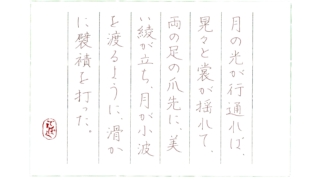 月の光が行通れば、
晃々と裳が揺れて、
両の足の爪先に、美
い綾が立ち、月が小波
を渡るように、滑か
に襞襀を打った。